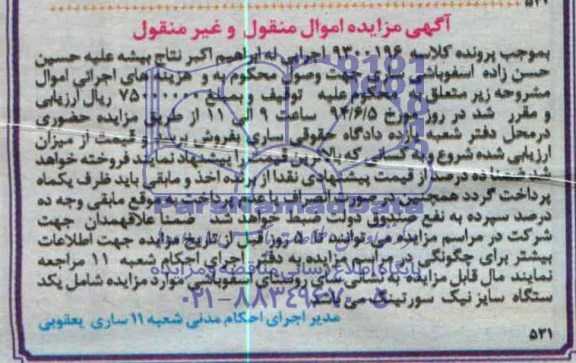 آگهی مزایده اموال منقول و غیر منقول
بموجب پرونده کلاسه ۹۳۰۰۱۹۶ اجرایی له ابراهیم اکبر نتاج بیشه علیه حسین
حسن زاده اسفوباشی ساری جهت وصول محکوم به و هزینه های اجرائی اموال
مشروحه زیر متعلق به محکوم علیه توقیف و بمبلغ ریال ارزیابی
و مقرر شد در روز مورخ ۹۴/۶/۵ ساعت ۹ الی ۱۱ از طریق مزایده حضوری
درمحل دفتر شعبه یازده دادگاه حقوقی ساری بفروش برسد و قیمت از میزان
ارزیابی شده شروع و به کسانی که بالاترین قیمت را پیشنهاد نمایند فروخته خواهد
شد ضمنا ده درصد از قیمت پیشنهادی نقدا از برنده اخذ و مابقی باید ظرف یکماه
پرداخت گردد همچنین در صورت انصراف یا عدم پرداخت به موقع مابقی وجه ده
درصد سپرده به نفع صندوق دولت ضبط خواهد شد ضمنا علاقهمندان جهت
شرکت در مراسم مزایده می توانند تا ۵ روز قبل از تاریخ مزایده جهت اطلاعات
بیشتر برای چگونگی در مراسم مزایده به دفتر اجرای احکام شعبه ۱۱ مراجعه
نمایند مال قابل مزایده به نشانی ساری روستای اسفوباشی موارد مزایده شامل یکد
ستگاه سایز نیک سورتینگ می باشد
مدیر اجرای احکام مدنی شعبه ۱۱ ساری یعقوبی
۵۲۱
ParsNamadData
پایگاه اطلاع رسانی مناقصه و مزایده
۰۲۱-۸۸۳۴۹۶۷۰-۵